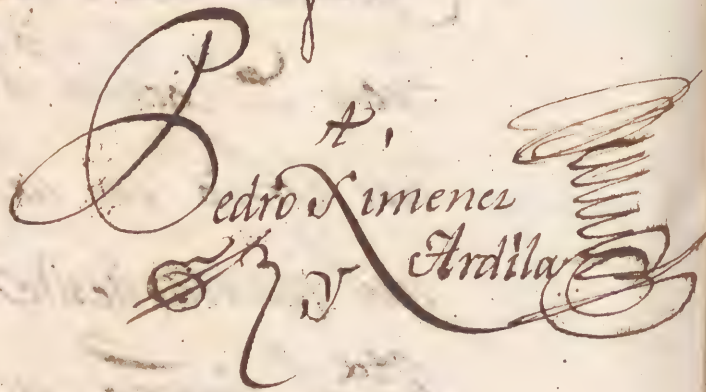 A,
Pedro Ximenez
Ardila
V